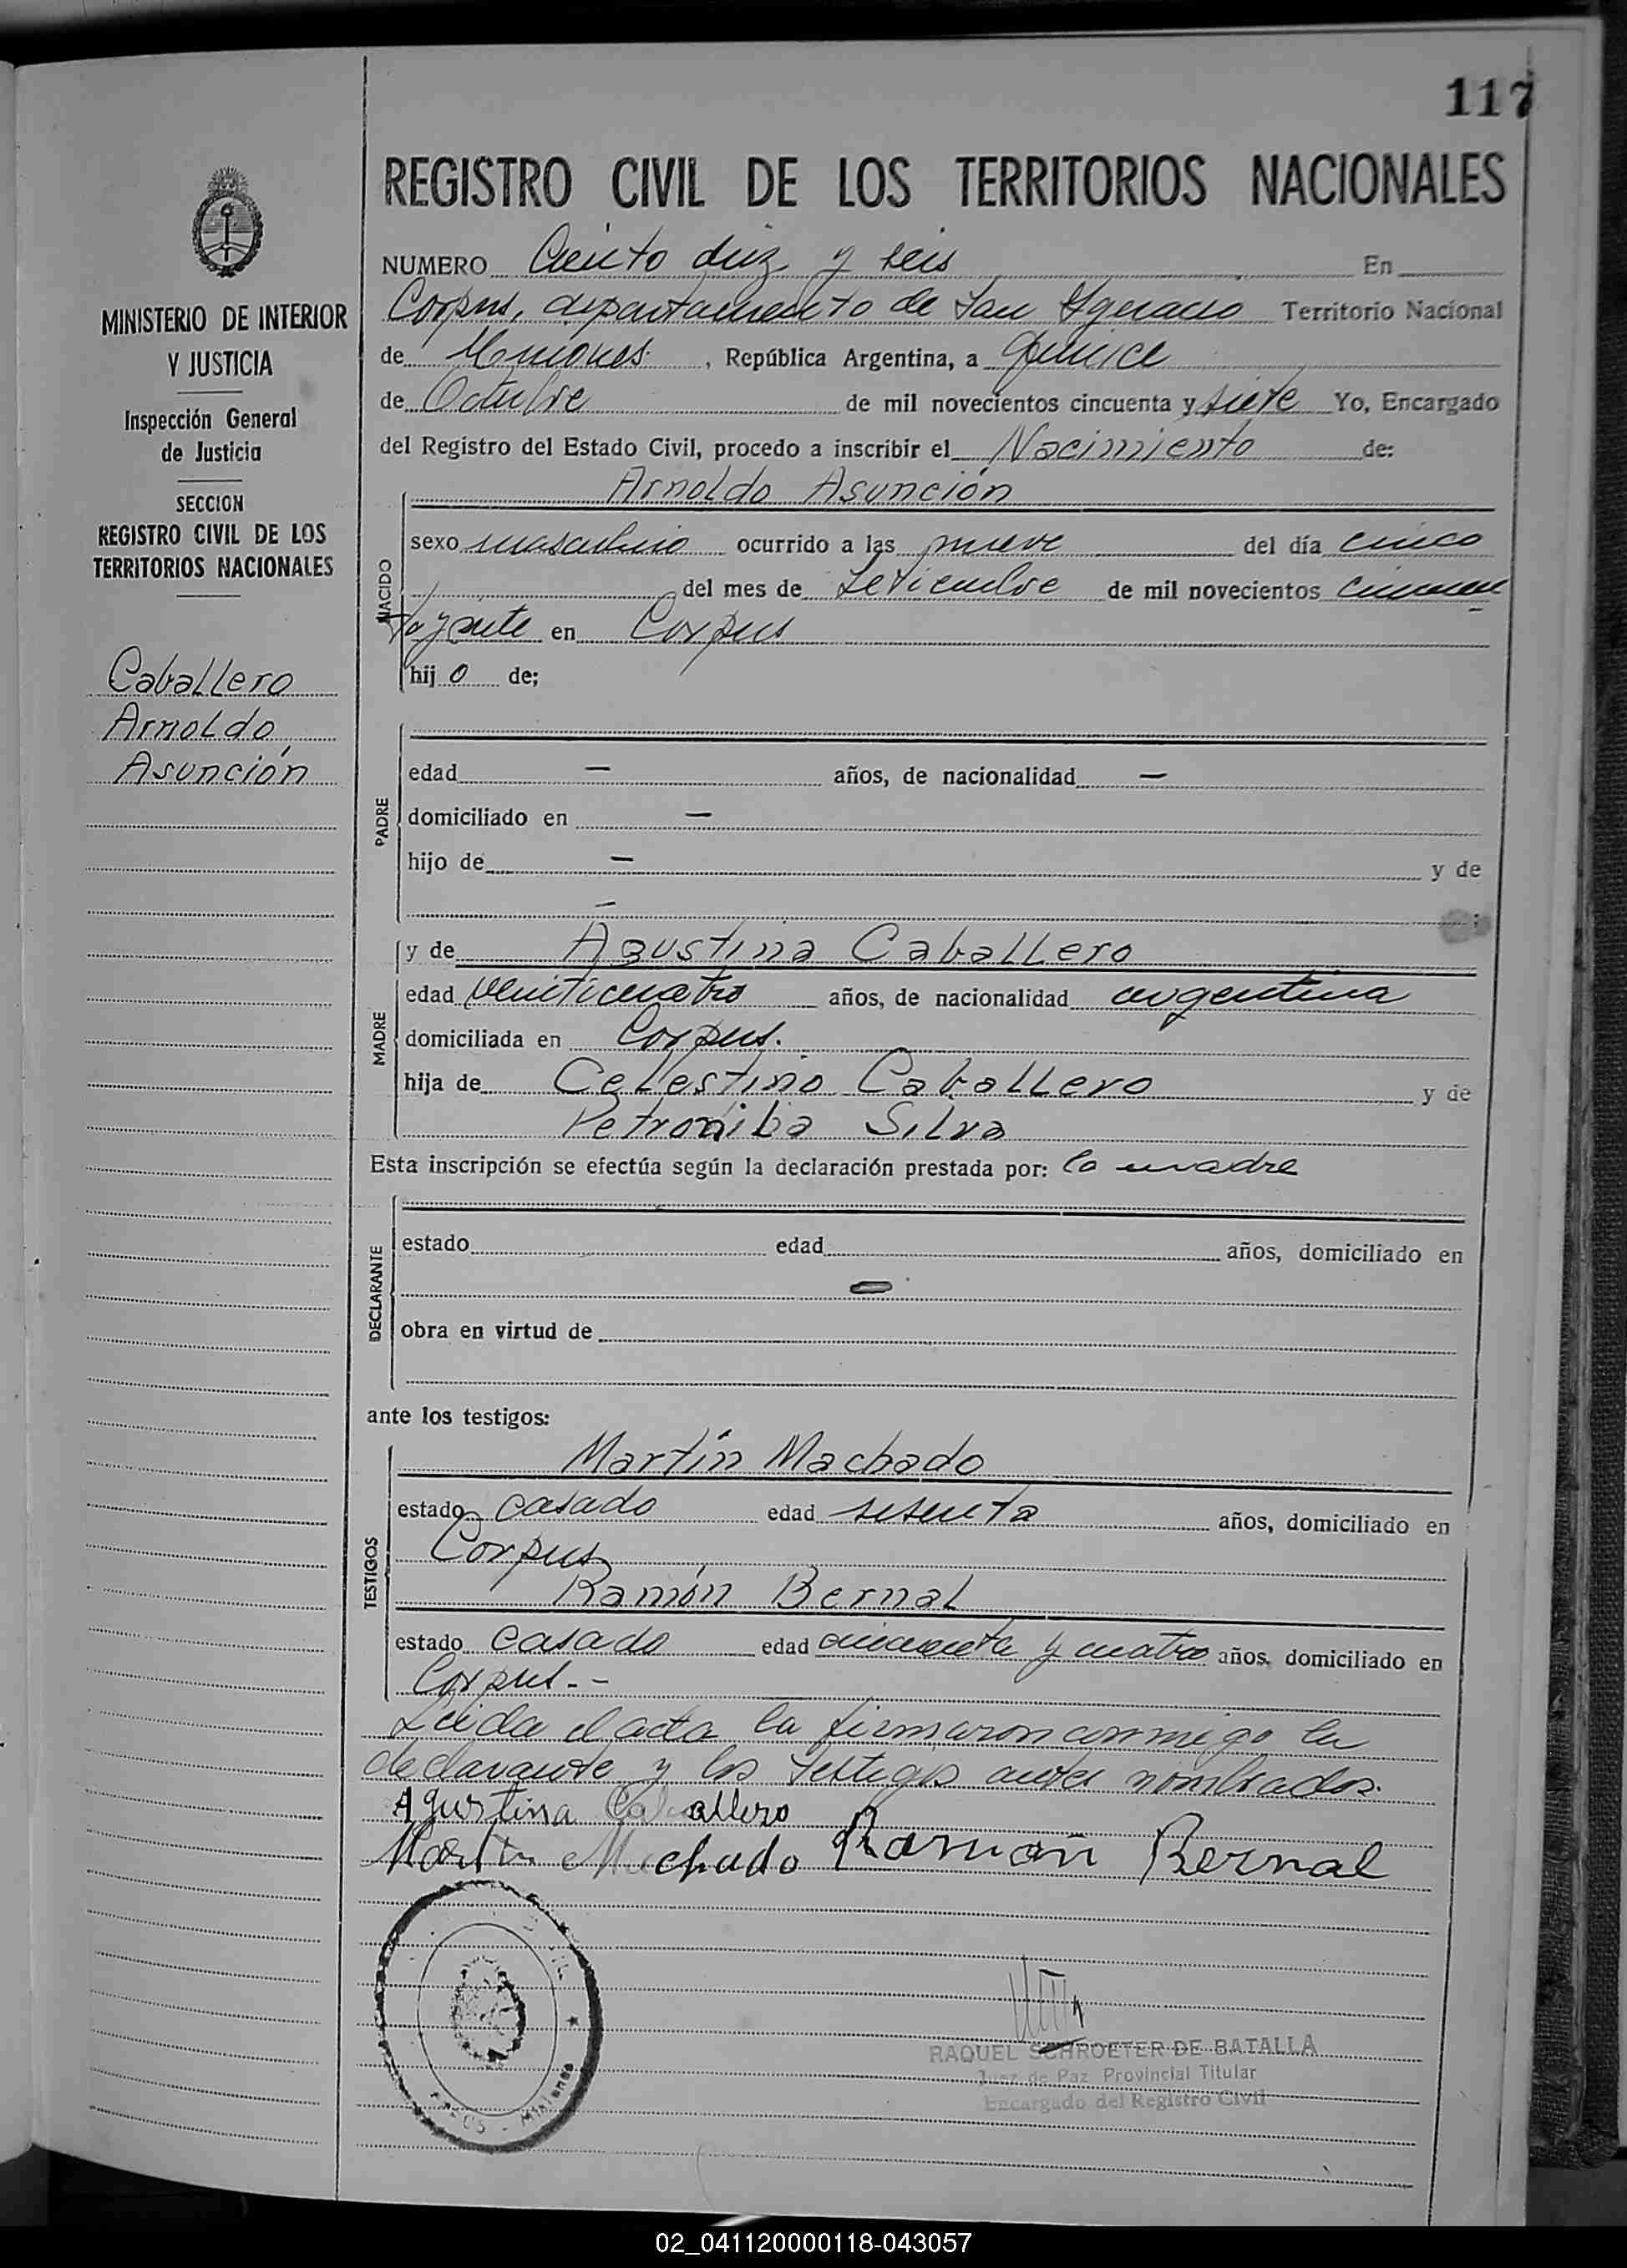 117
REGISTRO CIVIL DE LOS TERRITORIOS NACIONALES
MINISTERIO DE INTERIOR
Y JUSTICIA
Inspección General
de Justicia
SECCION
REGISTRO CIVIL DE LOS
TERRITORIOS NACIONALES
Caballero
Arnoldo
Asunción
NUMERO Ciento diez y seis En
Corpus, departamento de San Ygnacio Territorio Nacional
de Misiones, República Argentina, a quince
de Octubre de mil novecientos cincuenta y siete Yo, Encargado
del Registro del Estado Civil, procedo a inscribir el Nacimiento de:
NACIDO
Arnoldo Asunción
sexo masculino ocurrido a las nueve del día cinco
del mes de Setiembre de mil novecientos
en Corpus
hij o de;
PADRE
edad — años, de nacionalidad —
domiciliado en —
hijo de — y de
—
MADRE
y de Agustina Caballero
edad veinticuatro años, de nacionalidad argentina
domiciliada en Corpus.
hija de Celestino Caballero y de
Petronila Silva
Esta inscripción se efectúa según la declaración prestada por: la madre
DECLARANTE
estado edad años, domiciliado en
—
obra en virtud de
ante los testigos:
TESTIGOS
Martín Machado
estado casado edad sesenta años, domiciliado en
Corpus
Ramón Bernal
estado casado edad cincuenta y cuatro años, domiciliado en
Corpus.-
Leida el acta la firmaron conmigo la
declarante y los testigos antes nombrados.
Agustina Caballero
Martin Machado Ramón Bernal
Misiones
RAQUEL SCHROETER DE BATALLA
Juez de Paz Provincial Titular
Encargado del Registro Civil
02_041120000118-043057